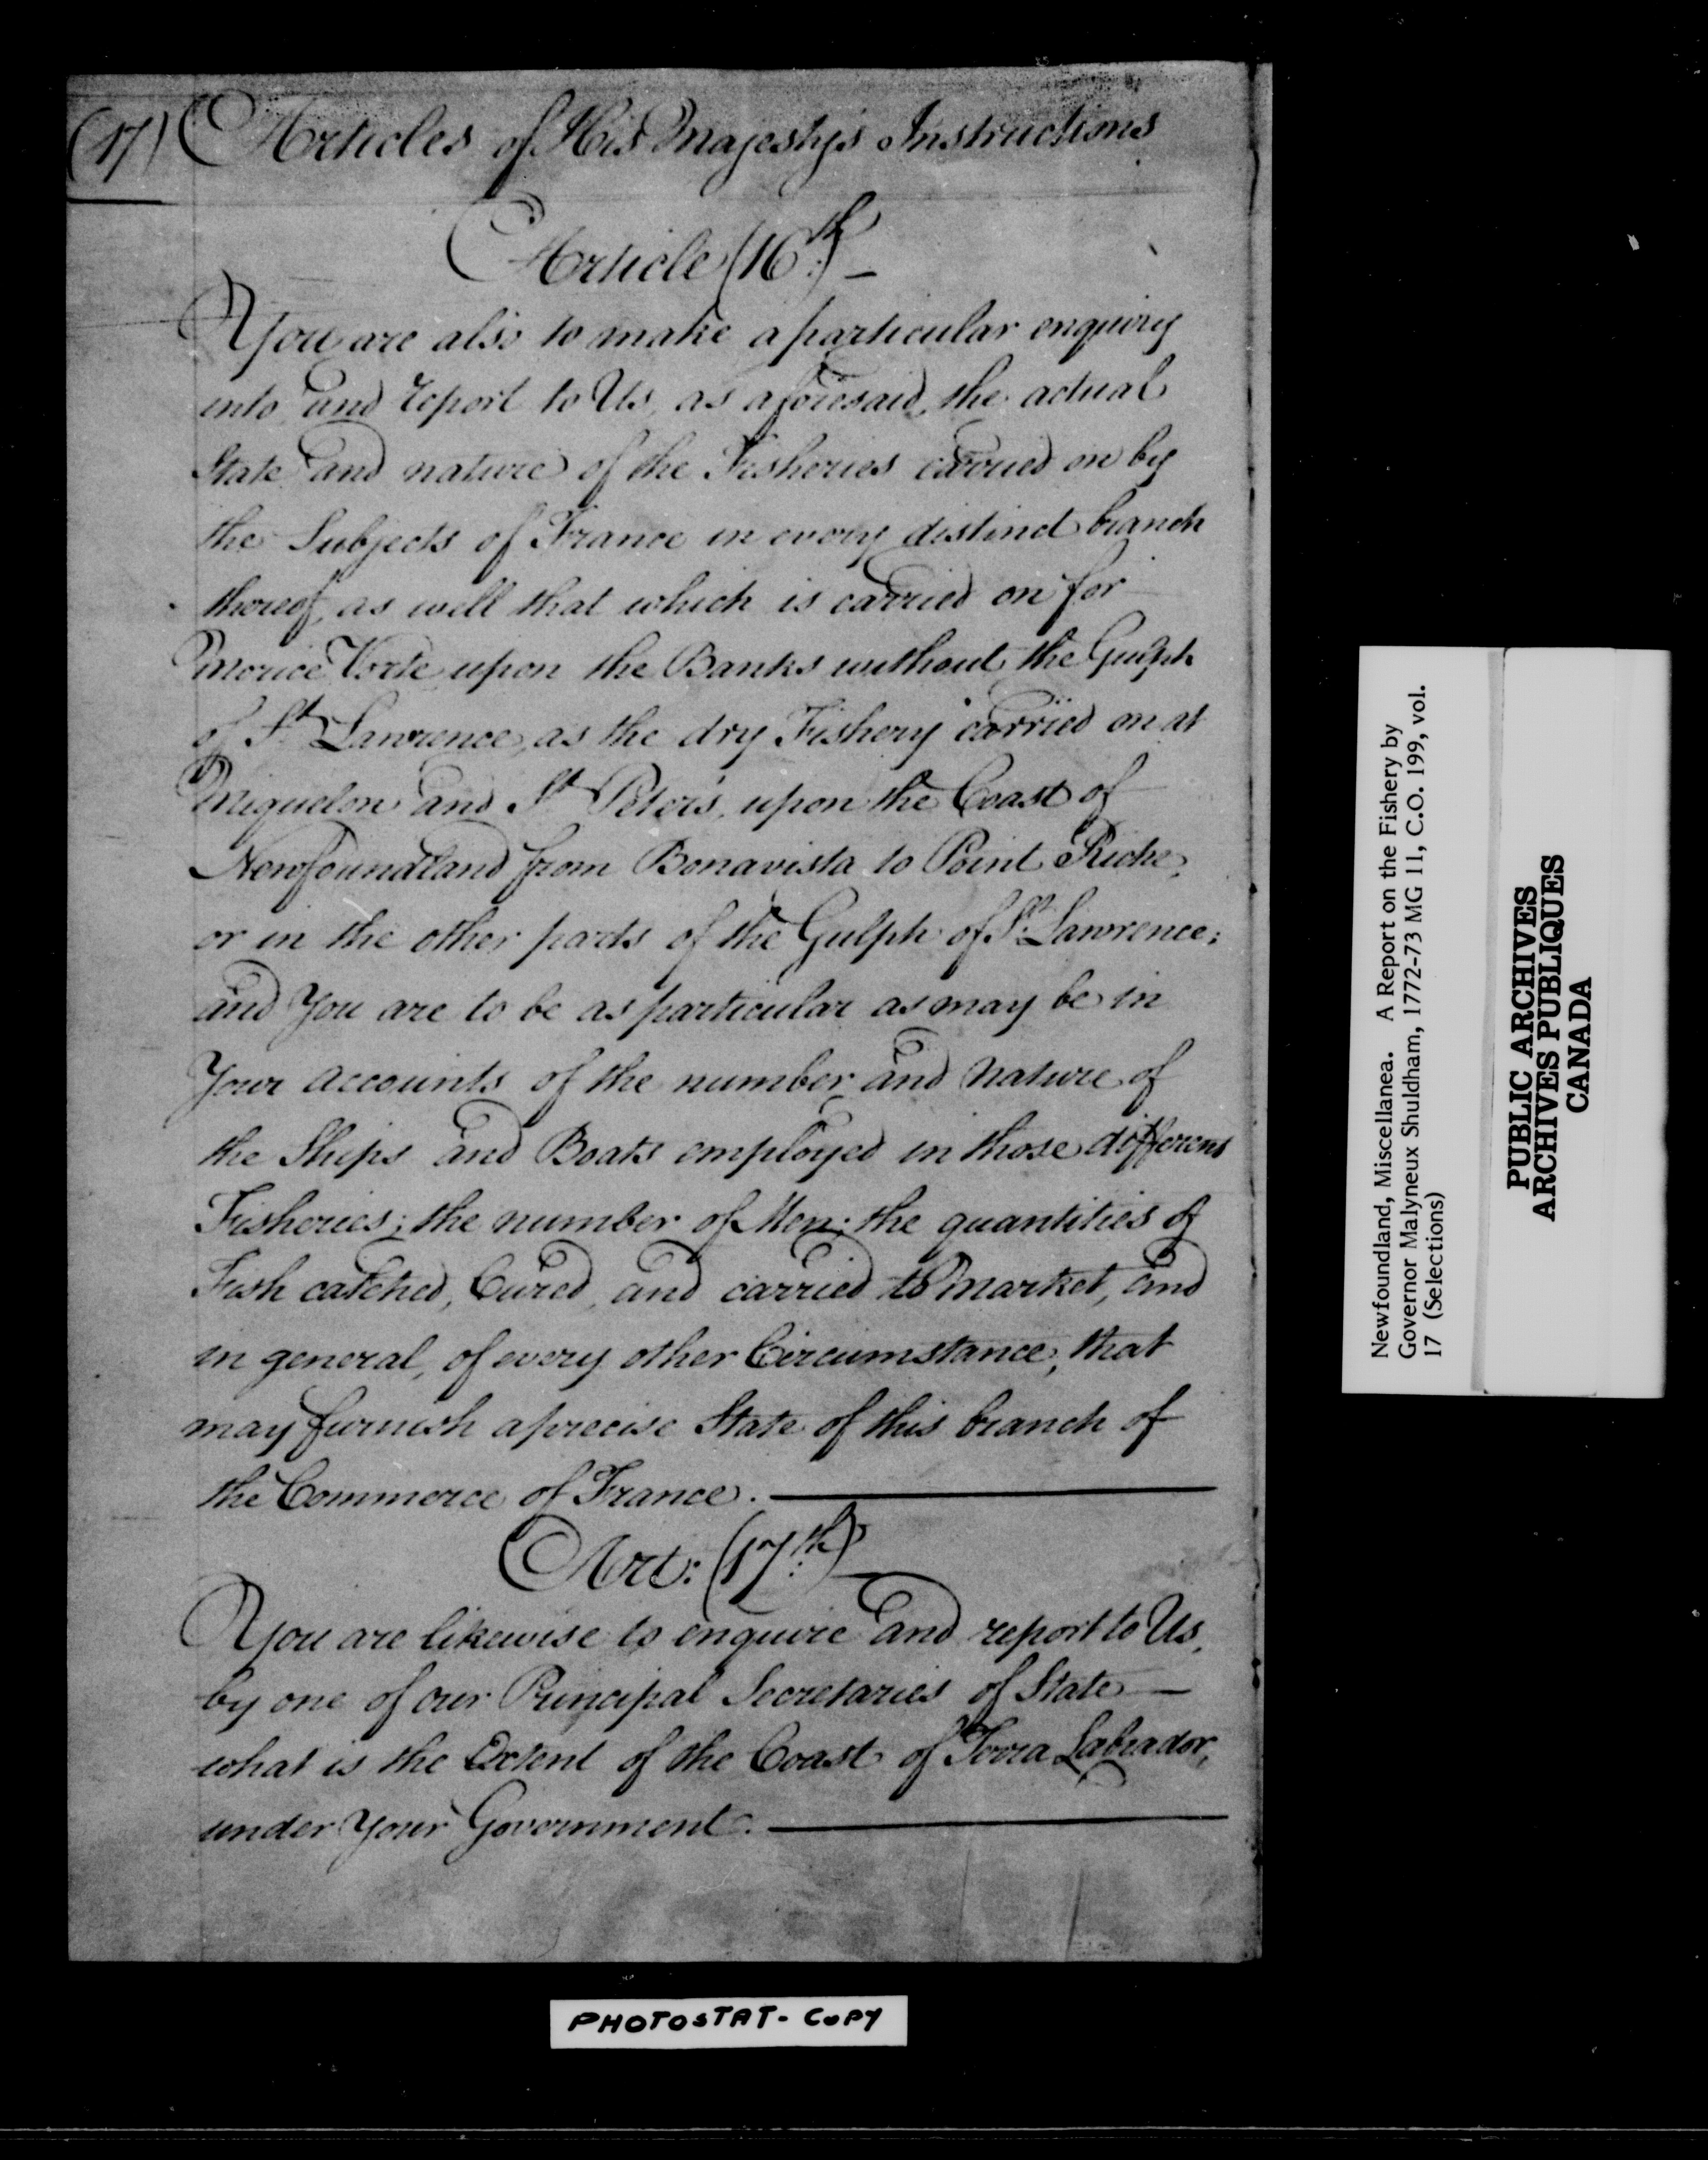 (17) Articles of His Majesty's Instructions
Article (16th:) —
You are also to make a particular enquiry
into and report to Us, as aforesaid, the actual
State and nature of the Fisheries carried on by
the Subjects of France in every distinct branch
thereof, as well that which is carried on for
Morice Verte upon the Banks without the Gulph
of St. Lawrence, as the dry Fishery carried on at
Miquelon and St. Peter's, upon the Coast of
Newfoundland from Bonavista to Point Riche,
or in the other parts of the Gulph of St. Lawrence;
and You are to be as particular as may be in
Your accounts of the number and Nature of
the Ships and Boats employed in those different
Fisheries; the number of Men; the quantities of
Fish catched, Cured, and carried to Market, and
in general, of every other Circumstance, that
may furnish a precise State of this branch of
the Commerce of France. —
Art: (17th:) —
You are likewise to enquire and report to Us,
by one of our Principal Secretaries of State —
what is the Extent of the Coast of Terra Labrador,
under Your Government. —
PHOTOSTAT - COPY
Newfoundland, Miscellanea. A Report on the Fishery by
Governor Malyneux Shuldham, 1772-73 MG 11, C.O. 199, vol.
17 (Selections)
PUBLIC ARCHIVES
ARCHIVES PUBLIQUES
CANADA